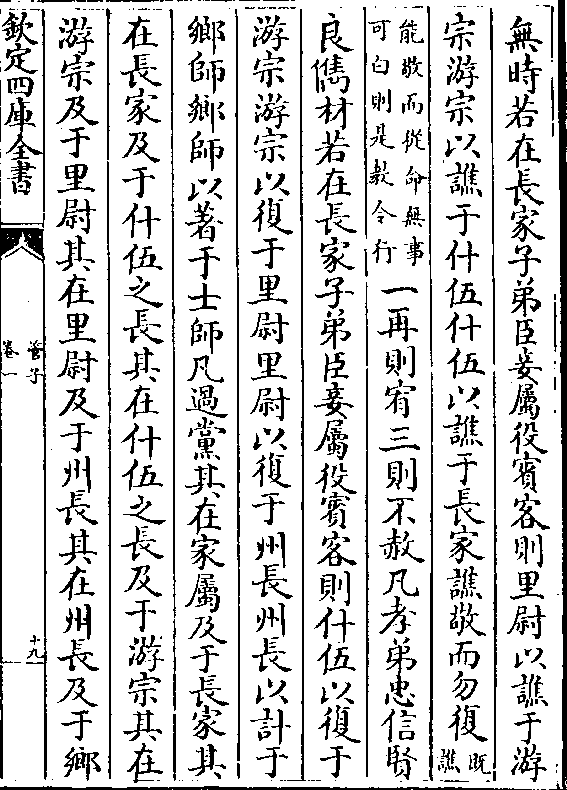 無時若在長家子弟臣妾屬役賓客則里尉以譙于游
宗游宗以譙于什伍什伍以譙于長家譙敬而勿復既譙
能敬而從命無事可白則是教令行一再則宥三則不赦凡孝弟忠信賢
良儁材若在長家子弟臣妾屬役賓客則什伍以復于
游宗游宗以復于里尉里尉以復于州長州長以計于
鄉師鄉師以著于士師凡過黨其在家屬及于長家其
在長家及于什伍之長其在什伍之長及于游宗其在
游宗及于里尉其在里尉及于州長其在州長及于鄉
欽定四庫全書
管子
卷一
十九